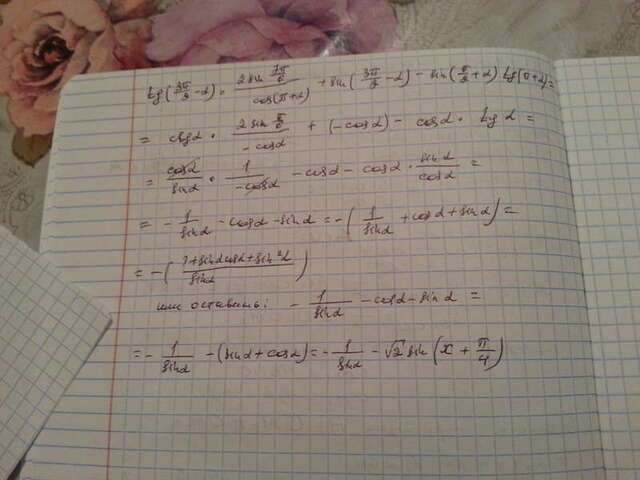 tg(3π/2 - α) · 2 sin 7π/6 / cos(π+α) + sin(3π/2 - α) - sin(π/2 + α) tg(π+α) =
= ctgα · 2 sin π/6 / -cosα + (-cosα) - cosα · tg α =
= cosα/sinα · 1/-cosα - cosα - cosα · sinα/cosα =
= - 1/sinα - cosα - sinα = -(1/sinα + cosα + sinα) =
= -(1+sinαcosα+sin²α / sinα)
или оставить: - 1/sinα - cosα - sinα =
= - 1/sinα - (sinα + cosα) = - 1/sinα - √2 sin(x + π/4)